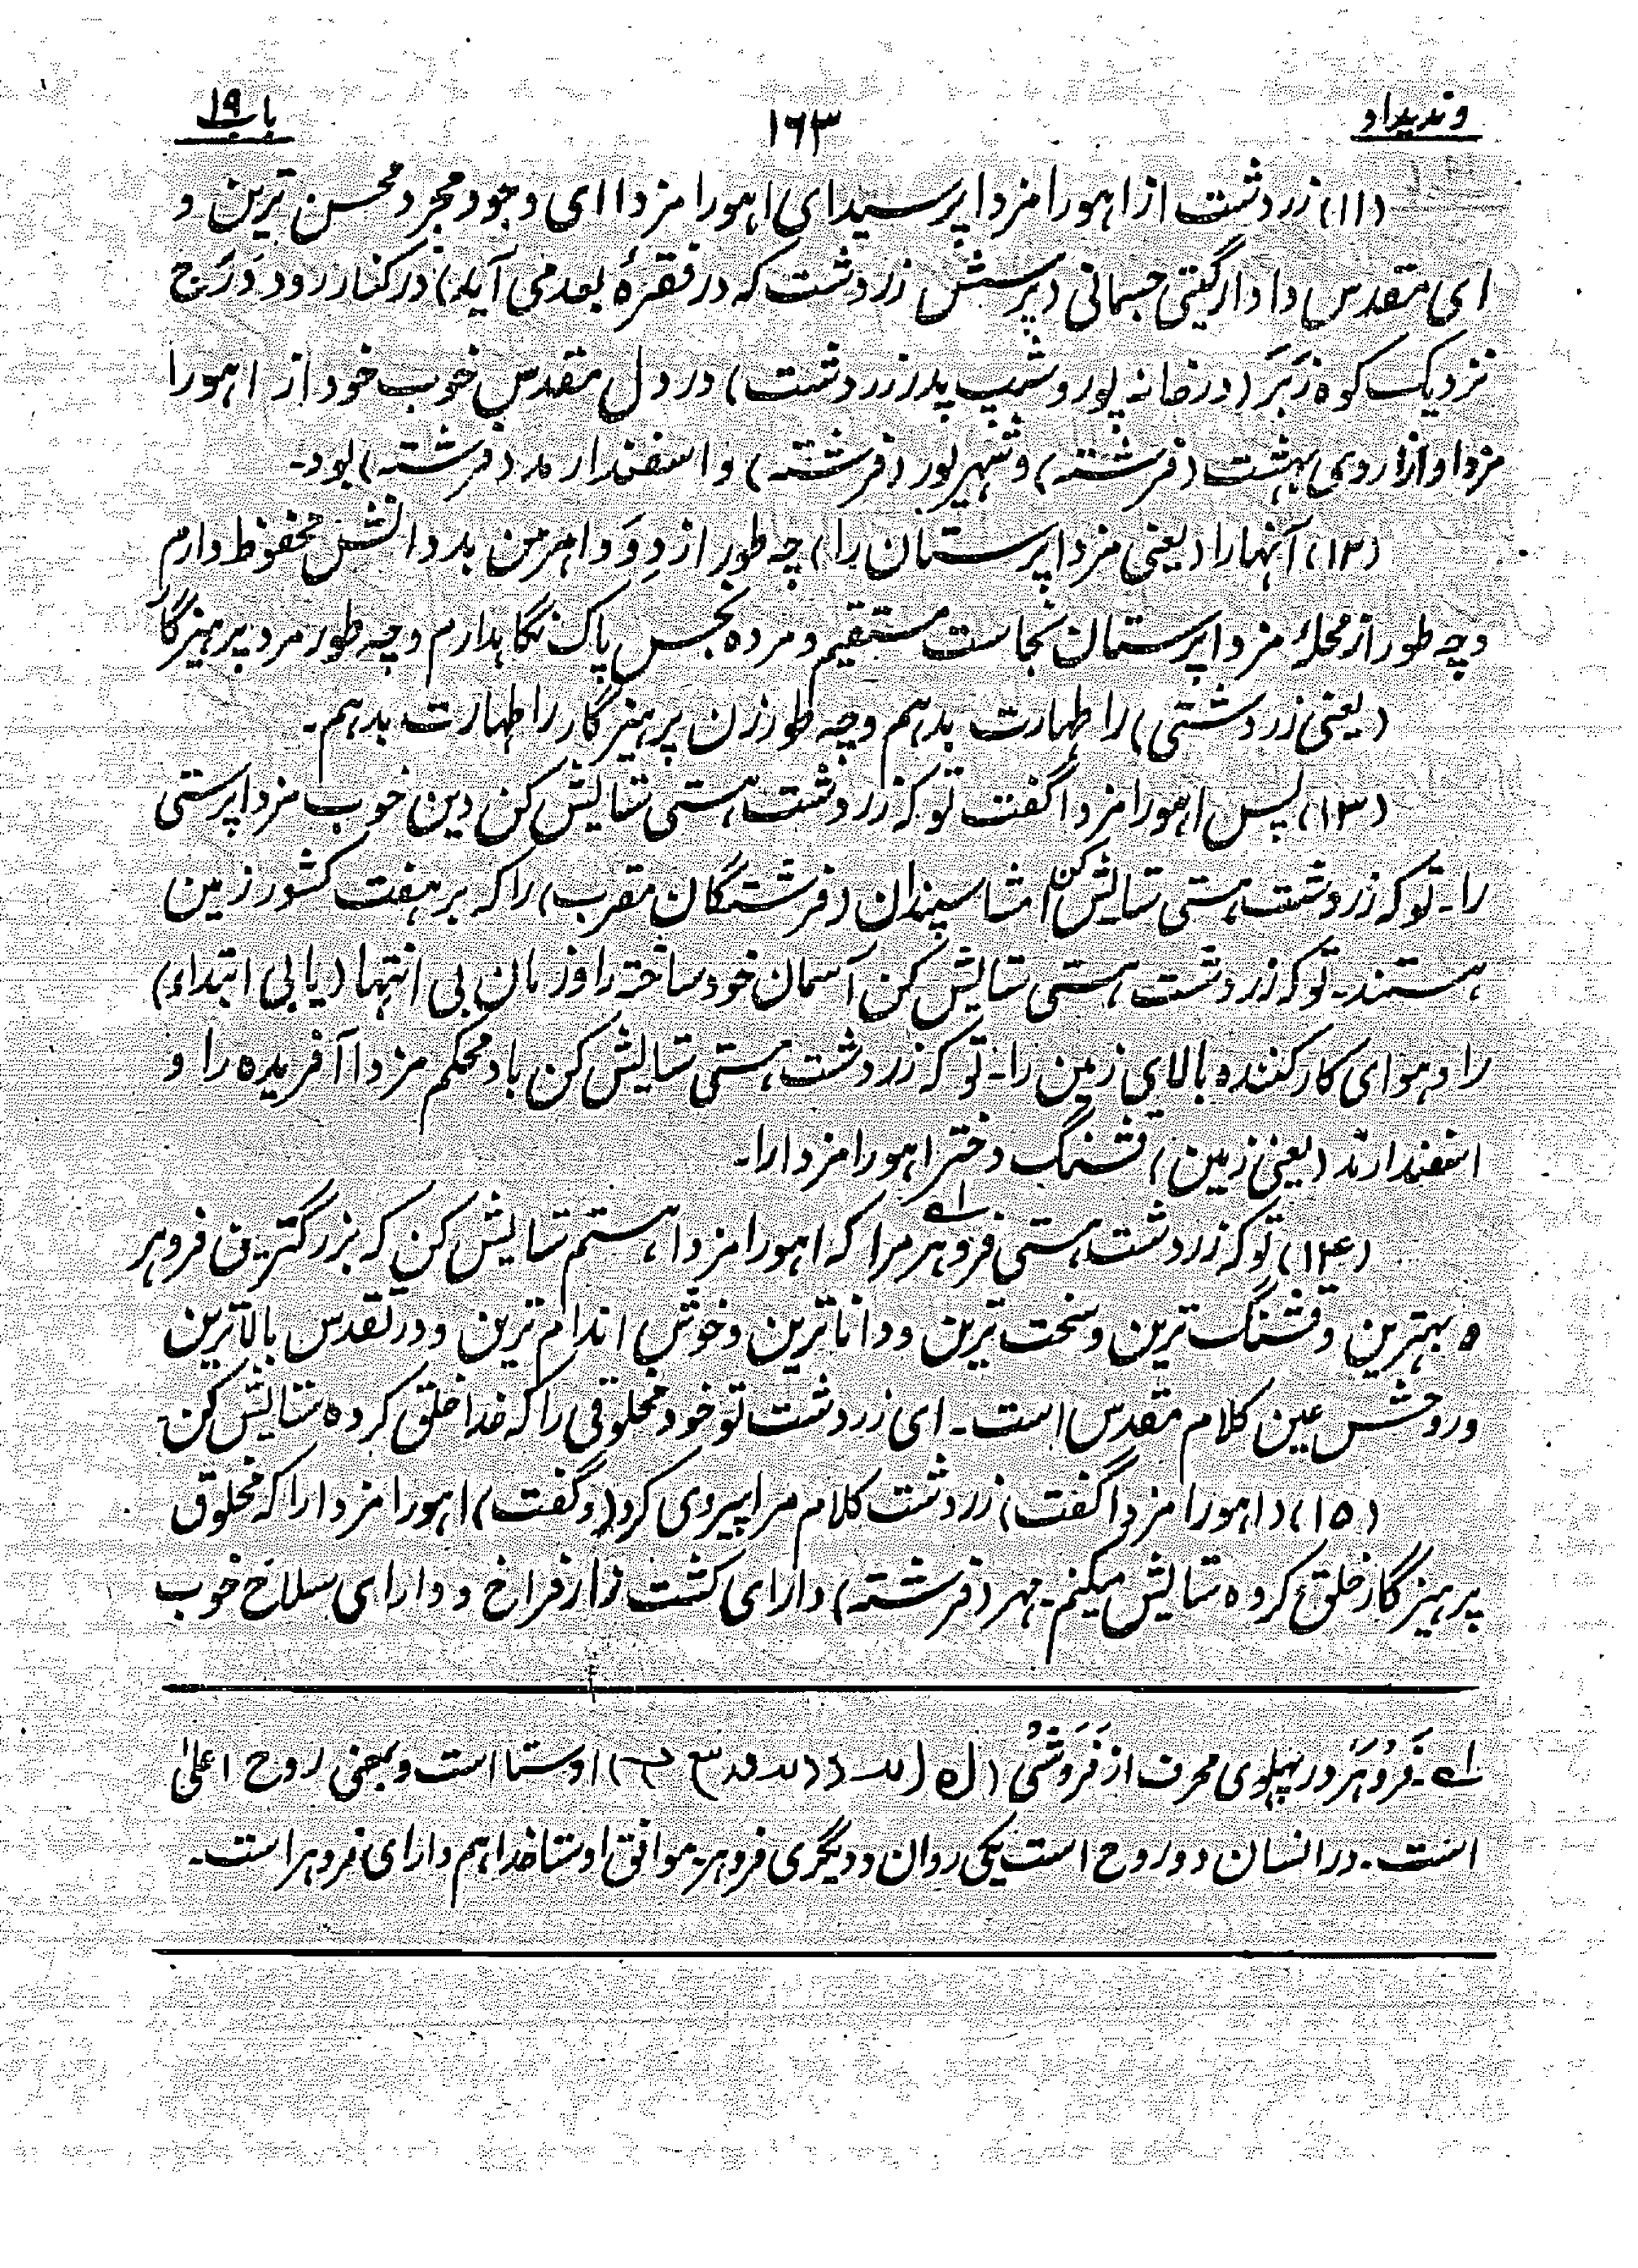 وندیداد
۱۶۳
باب ۱۹
(۱۱) زردشت از اهورا مزدا پرسید ای اهورا مزدا ای وجود مجرد محسن ترین و
ای مقدس دادار گیتی جسمانی (پرسش زردشت که در فقرهٔ بعد می آید) در کنار رود دَرَج
نزدیک کوه زَبَر (در خانه پوروشسپ پدر زردشت) در دل مقدس خوب خود از اهورا
مزدا و از اردی بهشت (فرشته) و شهریور (فرشته) و اسفندارمد (فرشته) بود۔
(۱۲) آنها را (یعنی مزدا پرستان را) چه طور از دِوَ و اهرمن بد دانش محفوظ دارم
و چه طور از محلهٔ مزدا پرستان نجاست مستقیم و مرده نجس پاک نگاهدارم و چه طور مرد پرهیزگار
(یعنی زردشتی) را طهارت بدهم و چه طور زن پرهیزگار را طهارت بدهم۔
(۱۳) پس اهورا مزدا گفت تو که زردشت هستی ستایش کن دین خوب مزدا پرستی
را۔ تو که زردشت هستی ستایش کن امشاسپندان (فرشتگان مقرب) را که بر هفت کشور زمین
هستند۔ تو که زردشت هستی ستایش کن آسمان خود ساخته را و زمان بی انتها (یا بی ابتداء)
را و هوای کار کننده بالای زمین را۔ تو که زردشت هستی ستایش کن باد محکم مزدا آفریده را و
اسفندارمد (یعنی زمین) قشنگ دختر اهورا مزدا را۔
(۱۴) تو که زردشت هستی فروهر ۱ مرا که اهورا مزدا هستم ستایش کن که بزرگترین فروهر
و بهترین و قشنگ ترین و سخت ترین و داناترین و خوش اندام ترین و در تقدس بالاترین
و روحش عین کلام مقدس است۔ ای زردشت تو خود مخلوقی را که خدا خلق کرده ستایش کن۔
(۱۵) (اهورا مزدا گفت) زردشت کلام مرا پیروی کرد (و گفت) اهورا مزدا را که مخلوق
پرهیزگار خلق کرده ستایش میکنم۔ مهر (فرشته) دارای کشت زار فراخ و دارای سلاح خوب
۱۔ فَروُهَر در پهلوی محرف از فَرَوَشی () اوستا است و بمعنی روح اعلیٰ
است۔ در انسان دو روح است یکی روان و دیگری فروهر۔ موافق اوستا خدا هم دارای فروهر است۔